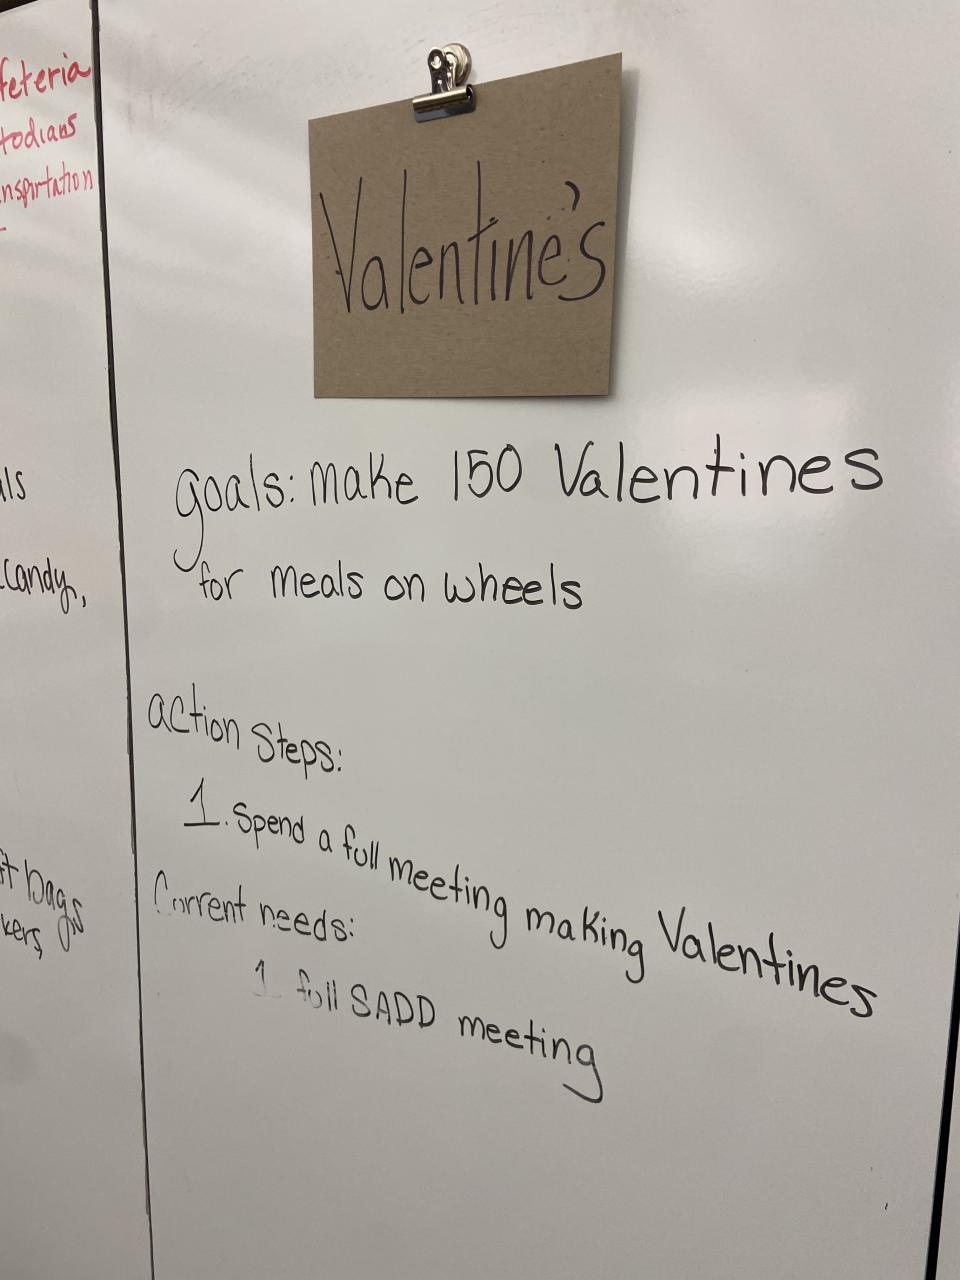 Valentine's
goals: make 150 Valentines
for meals on wheels
action steps:
1. Spend a full meeting making Valentines
Current needs:
1 full SADD meeting
Candy,
bags